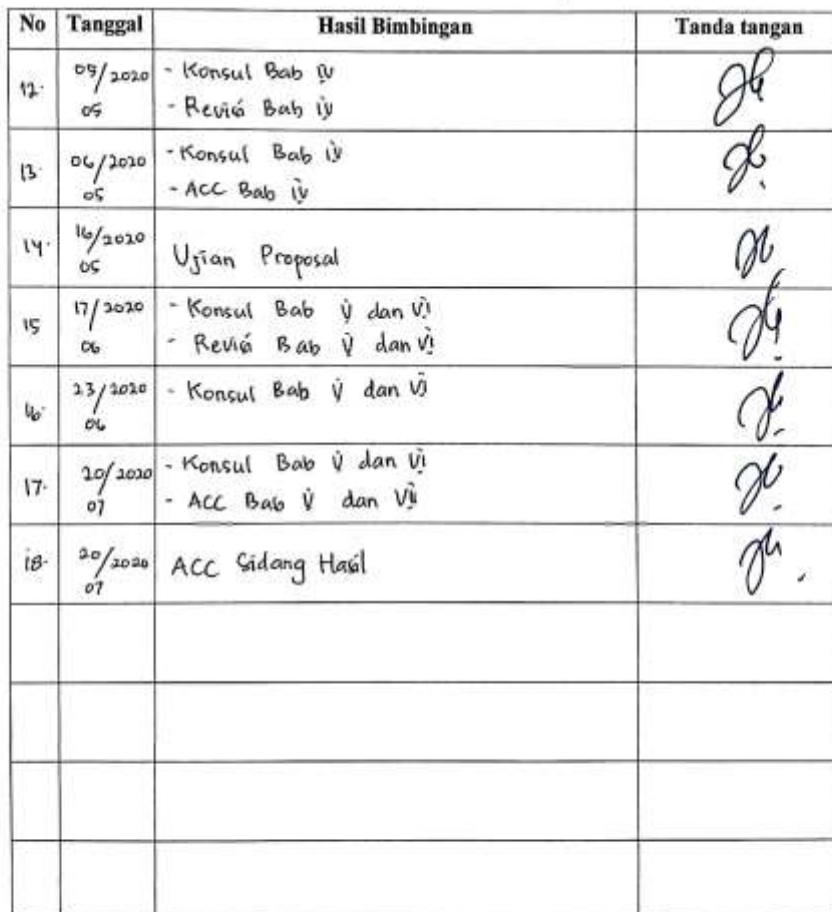 No Tanggal Hasil Bimbingan Tanda tangan
12. 05/2020 - Konsul Bab IV
05 - Revisi Bab IV
13. 06/2020 - Konsul Bab IV
05 - ACC Bab IV
14. 16/2020 Ujian Proposal
05
15 17/2020 - Konsul Bab V dan VI
06 - Revisi Bab V dan VI
16. 23/2020 - Konsul Bab V dan VI
06
17. 20/2020 - Konsul Bab V dan VI
07 - ACC Bab V dan VI
18. 20/2020 ACC Sidang Hasil
07